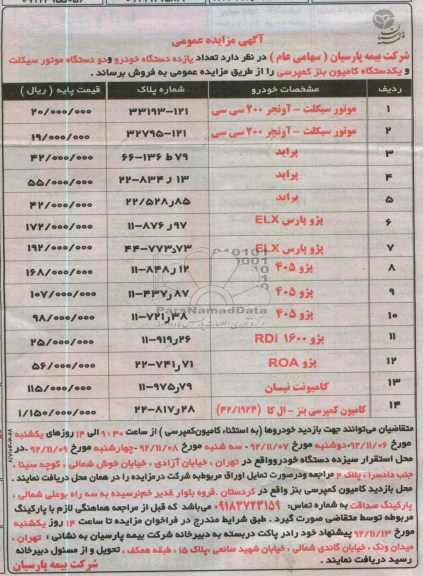 آگهی مزایده عمومی
شرکت بیمه پارسیان ( سهامی عام ) در نظر دارد تعداد یازده دستگاه خودرو و دو دستگاه موتور سیکلت
و یکدستگاه کامیون بنز کمپرسی را از طریق مزایده عمومی به فروش برساند .
ردیف مشخصات خودرو شماره پلاک قیمت پایه ( ریال )
۱ موتور سیکلت - آونجر ۲۰۰ سی سی ۳۳۱۹۳-۱۲۱ ۲۰/۰۰۰/۰۰۰
۲ موتور سیکلت - آونجر ۲۰۰ سی سی ۳۲۷۹۵-۱۲۱ ۱۹/۰۰۰/۰۰۰
۳ پراید ۷۹ط ۱۳۶-۶۶ ۴۲/۰۰۰/۰۰۰
۴ پراید ۱۳ر ۸۳۴-۲۲ ۵۵/۰۰۰/۰۰۰
۵ پراید ۸۵ر۲۲/۵۲۸ ۴۲/۰۰۰/۰۰۰
۶ پژو پارس ELX ۹۷ر۸۷۶-۱۱ ۱۷۲/۰۰۰/۰۰۰
۷ پژو پارس ELX ۷۳د۷۷۳-۴۴ ۱۹۲/۰۰۰/۰۰۰
۸ پژو ۴۰۵ ۱۲ر۸۴۸-۱۱ ۱۶۸/۰۰۰/۰۰۰
۹ پژو ۴۰۵ ۸۷ر۴۳۷-۱۱ ۱۰۷/۰۰۰/۰۰۰
۱۰ پژو ۴۰۵ ۳۸ر۷۲۱-۱۱ ۹۸/۰۰۰/۰۰۰
۱۱ پژو RDi ۱۶۰۰ ۲۶ر۹۱۹-۱۱ ۲۵/۰۰۰/۰۰۰
۱۲ پژو ROA ۷۱ر۷۴۱-۲۲ ۵۶/۰۰۰/۰۰۰
۱۳ کامیونت نیسان ۷۹ر۹۷۵-۱۱ ۱۱۵/۰۰۰/۰۰۰
۱۴ کامیون کمپرسی بنز - ال کا (۴۲/۱۹۲۴) ۲۸ر۸۱۷-۲۲ ۱/۱۵۰/۰۰۰/۰۰۰
متقاضیان می‌توانند جهت بازدید خودروها (به استثناء کامیون‌کمپرسی ) از ساعت ۹:۳۰ الی ۱۴ روزهای یکشنبه
مورخ ۹۲/۱۱/۰۶ ،دوشنبه مورخ ۹۲/۱۱/۰۷ ، سه شنبه مورخ ۹۲/۱۱/۰۸ ،چهارشنبه مورخ ۹۲/۱۱/۰۹ ،در
محل استقرار سیزده دستگاه خودرو واقع در تهران ، خیابان آزادی ، خیابان خوش شمالی ، کوچه سینا ،
جنب دادسرا ، پلاک ۴ مراجعه ودرصورت تمایل اوراق مربوطه شرکت درمزایده را در همان محل دریافت نمایند .
محل بازدید کامیون کمپرسی بنز واقع در کردستان ،قروه بلوار غدیر خم‌نرسیده به سه راه بوعلی شمالی ،
پارکینگ صداقت به شماره تماس: ۰۹۱۸۳۷۲۳۱۵۹ می‌باشد که قبل از مراجعه هماهنگی لازم با پارکینگ
مربوطه توسط متقاضی صورت گیرد . طبق شرایط مندرج در فراخوان مزایده تا ساعت ۱۴ روز یکشنبه
مورخ ۹۲/۱۱/۱۳ پیشنهاد خود را در پاکت دربسته به دبیرخانه شرکت بیمه پارسیان به نشانی : تهران ،
میدان ونک ، خیابان گاندی شمالی ، خیابان شهید صانعی ،پلاک ۱۵ ، طبقه همکف ، تحویل و از مسئول دبیرخانه
رسید دریافت نمایند .
شرکت بیمه پارسیان
ParsNamadData